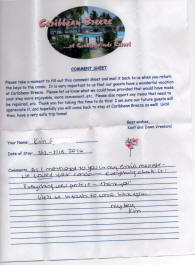 Caribbean Breeze
at Grandwinds Resort
COMMENT SHEET
Please take a moment to fill out this comment sheet and mail it back to us when you return
the keys to the condo. It is very important to us that our guests have a wonderful vacation
at Caribbean Breeze. Please let us know what we could have provided that would have made
your stay more enjoyable, more convenient, etc. Please also report any items that need to
be repaired, etc. Thank you for taking the time to do this! I am sure our future guests will
appreciate it, and hopefully you will come back to stay at Caribbean Breeze as well! Until
then, have a very safe trip home!
Best wishes,
Your Name: Kim
Date of Stay:
Comments: As I mentioned to you in my email message -
we loved your condo - Everything about it!
Everything was perfect - thank you!
We'd be in touch to come back again
Kim